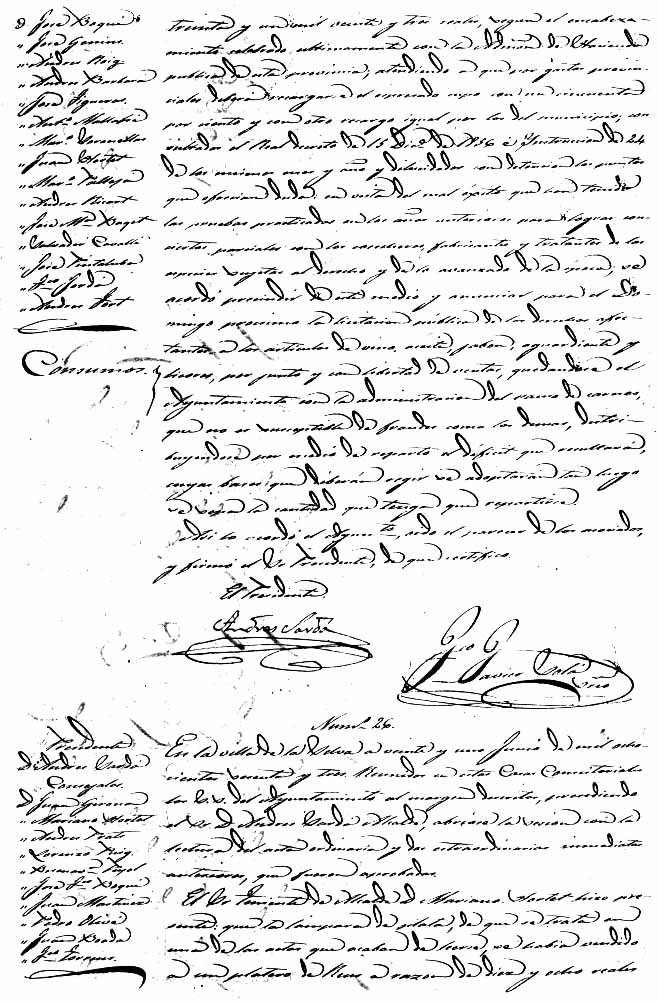 D José Boqué
" José Gomis
" Andres Roig
" Andres Barbará
" José Figueras
" Juan Hortet
" José Mª Boget
" Salvador Cavallé
" José Fontaluba
" Fco Jordá
" Andres Fort
Consumos
treinta y un mil veinte y tres reales, segun el encabeza-
miento celebrado ultimamente con la Admon de Hacienda
publica de esta provincia; atendiendo a que por gastos provin-
ciales debera recargarse el espresado cupo con un cincuenta
por ciento y con otro recargo igual por los del municipio; con-
sultados el Real decreto de 15 Dice de 1856 é Instruccion de 24
de los mismos mes y año y dilucidados con detencion los puntos
que ofrecian duda: en vista del mal éxito que han tenido
las pruebas practicadas en los años anteriores para lograr con-
ciertos parciales con los cosecheros, fabricantes y tratantes de las
especies sugetas al derecho y de lo avanzado de la época, se
acordó prescindir de este medio y anunciar para el Do-
mingo procsimo la licitacion pública de los derechos afec-
tantes a los articulos de vino, aceite, jabon, aguardiente y
licores, por junto y con libertad de ventas, quedandose el
Ayuntamiento con la administracion del ramo de carnes,
que no es susceptible de fraudes como los demas, distri-
buyendose por medio de reparto el déficit que resultará,
cuyas bases que deberán regir se adoptarán tan luego
se sepa la cantidad que tenga que repartirse.
Asi lo acordó el Ayuntto, oido el parecer de los asociados,
y firmó el Sr Presidente, de que certifico.
El Presidente
Andres Sardá
Fco Javier Srio
Numº 26.
Presidente
D Andres Sardá
Concejales
D Juan Gomis
" Mariano Hortet
" Lorenzo Roig
" José Fco Boqué
" Juan Martinez
" Pedro Oliva
" Juan
" Fco
En la villa de la Selva a veinte y uno Junio de mil ocho-
cientos sesenta y tres. Reunidos en estas Casas Consistoriales
los S.S. del Ayuntamiento al margen descritos, presidiendo
el Sr D Andres Sardá Alcalde, abriose la sesion con la
lectura del acta ordinaria y dos estraordinarias inmediatas
anteriores, que fueron aprobadas.
El Sr Teniente de Alcalde D. Mariano Hortet hizo pre-
sente: que la lampara de plata, de que se trata en
una de las actas que acaban de leerse, se habia vendido
a un platero de Reus a razon de diez y ocho reales